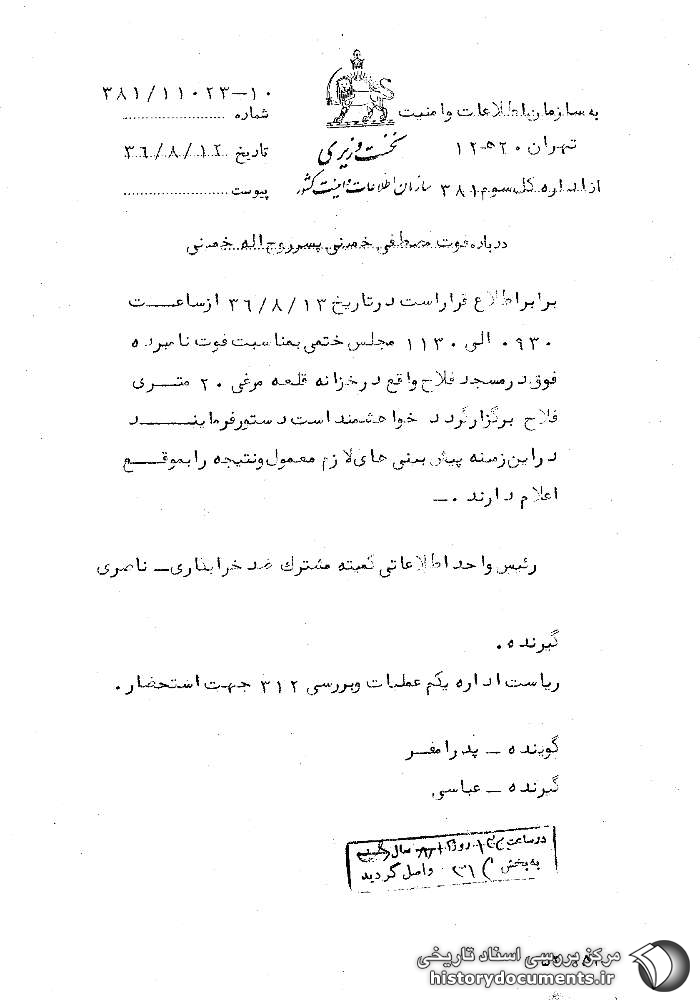 به سازمان اطلاعات وامنیت
تهران ۲۰ ه‍ ۱۲
از اداره کل سوم ۳۸۱
نخست وزیری
سازمان اطلاعات و امنیت کشور
۳۸۱/۱۱۰۲۳-۱۰
شماره
تاریخ ۳۶/۸/۱۲
پیوست
درباره فوت مصطفی خمینی پسر روح اله خمینی
برابر اطلاع قرار است در تاریخ ۳۶/۸/۱۳ از ساعت
۰۹۳۰ الی ۱۱۳۰ مجلس ختمی بمناسبت فوت نامبرده
فوق در مسجد فلاح واقع در خزانه قلعه مرغی ۲۰ متری
فلاح برگزار گردد خواهشمند است دستور فرمایند
در این زمینه پیش بینی های لازم معمول و نتیجه را بموقع
اعلام دارند .ـ
رئیس واحد اطلاعاتی کمیته مشترک ضد خرابکاری ـ ناصری
گیرنده .
ریاست اداره یکم عملیات و بررسی ۳۱۲ جهت استحضار .
گوینده ـ پدرامفر
گیرنده ـ عباسی
در ساعت روز سال
به بخش ۳۱۲ واصل گردید
مرکز بررسی اسناد تاریخی
historydocuments.ir